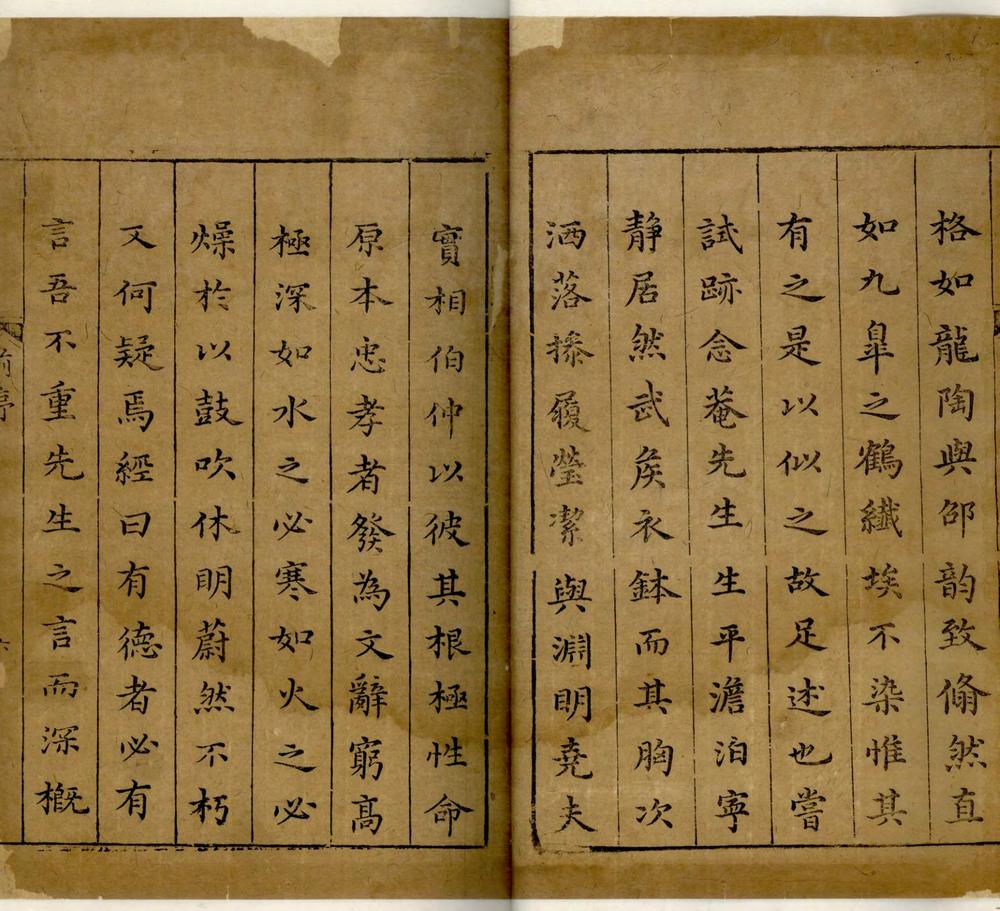 格如龍陶與邵韵致翛然直
如九臯之鶴纖埃不染惟其
有之是以似之故足述也嘗
試跡念菴先生生平澹泊寧
靜居然武矦衣鉢而其胸次
洒落搽履瑩潔與淵明堯夫
實相伯仲以彼其根極性命
原本忠孝者發為文辭窮高
極深如水之必寒如火之必
燥於以鼓吹休明蔚然不朽
又何疑焉經曰有德者必有
言吾不重先生之言而深概